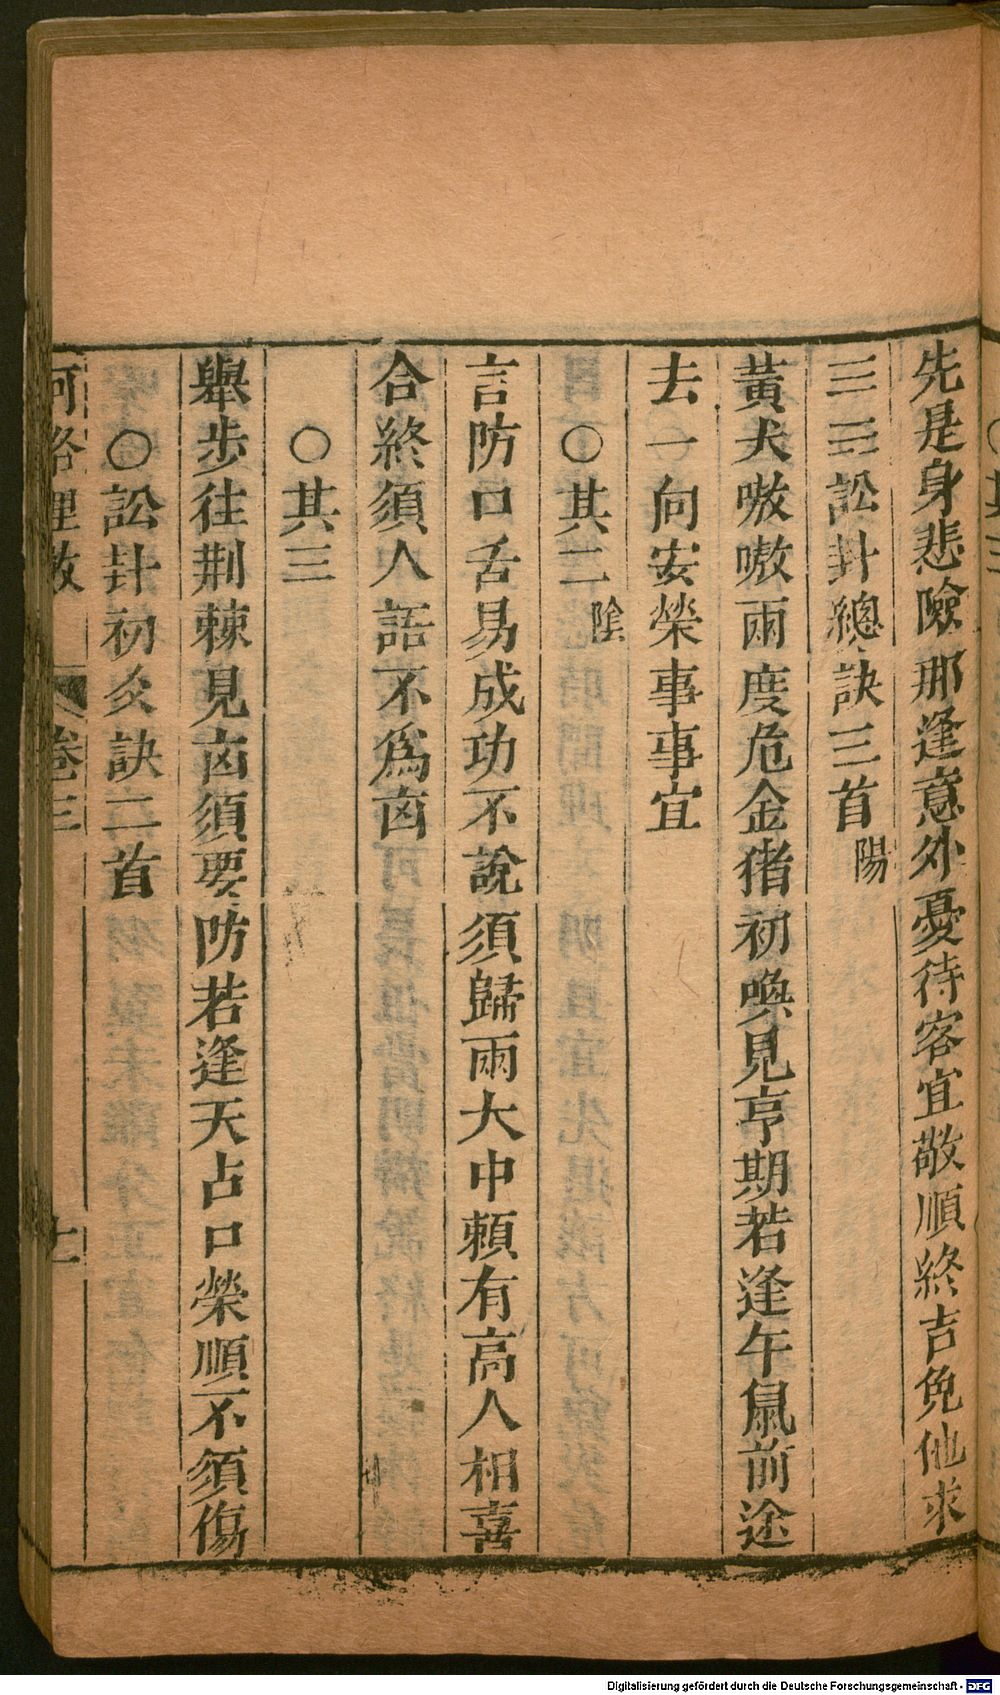 先是身悲險那逢意外憂待客宜敬順終吉免他求
三三訟卦總訣三首陽
黃犬嗷嗷兩度危金猪初喚見亨期若逢午鼠前途
去一向安榮事事宜
○其二陰
言防口舌易成功不說須歸兩大中賴有高人相喜
合終須人語不為凶
○其三
舉步往荆棘見凶須要防若逢天占口榮順不須傷
○訟卦初爻訣二首
河洛理數 卷三
Digitalisierung gefördert durch die Deutsche Forschungsgemeinschaft - DFG